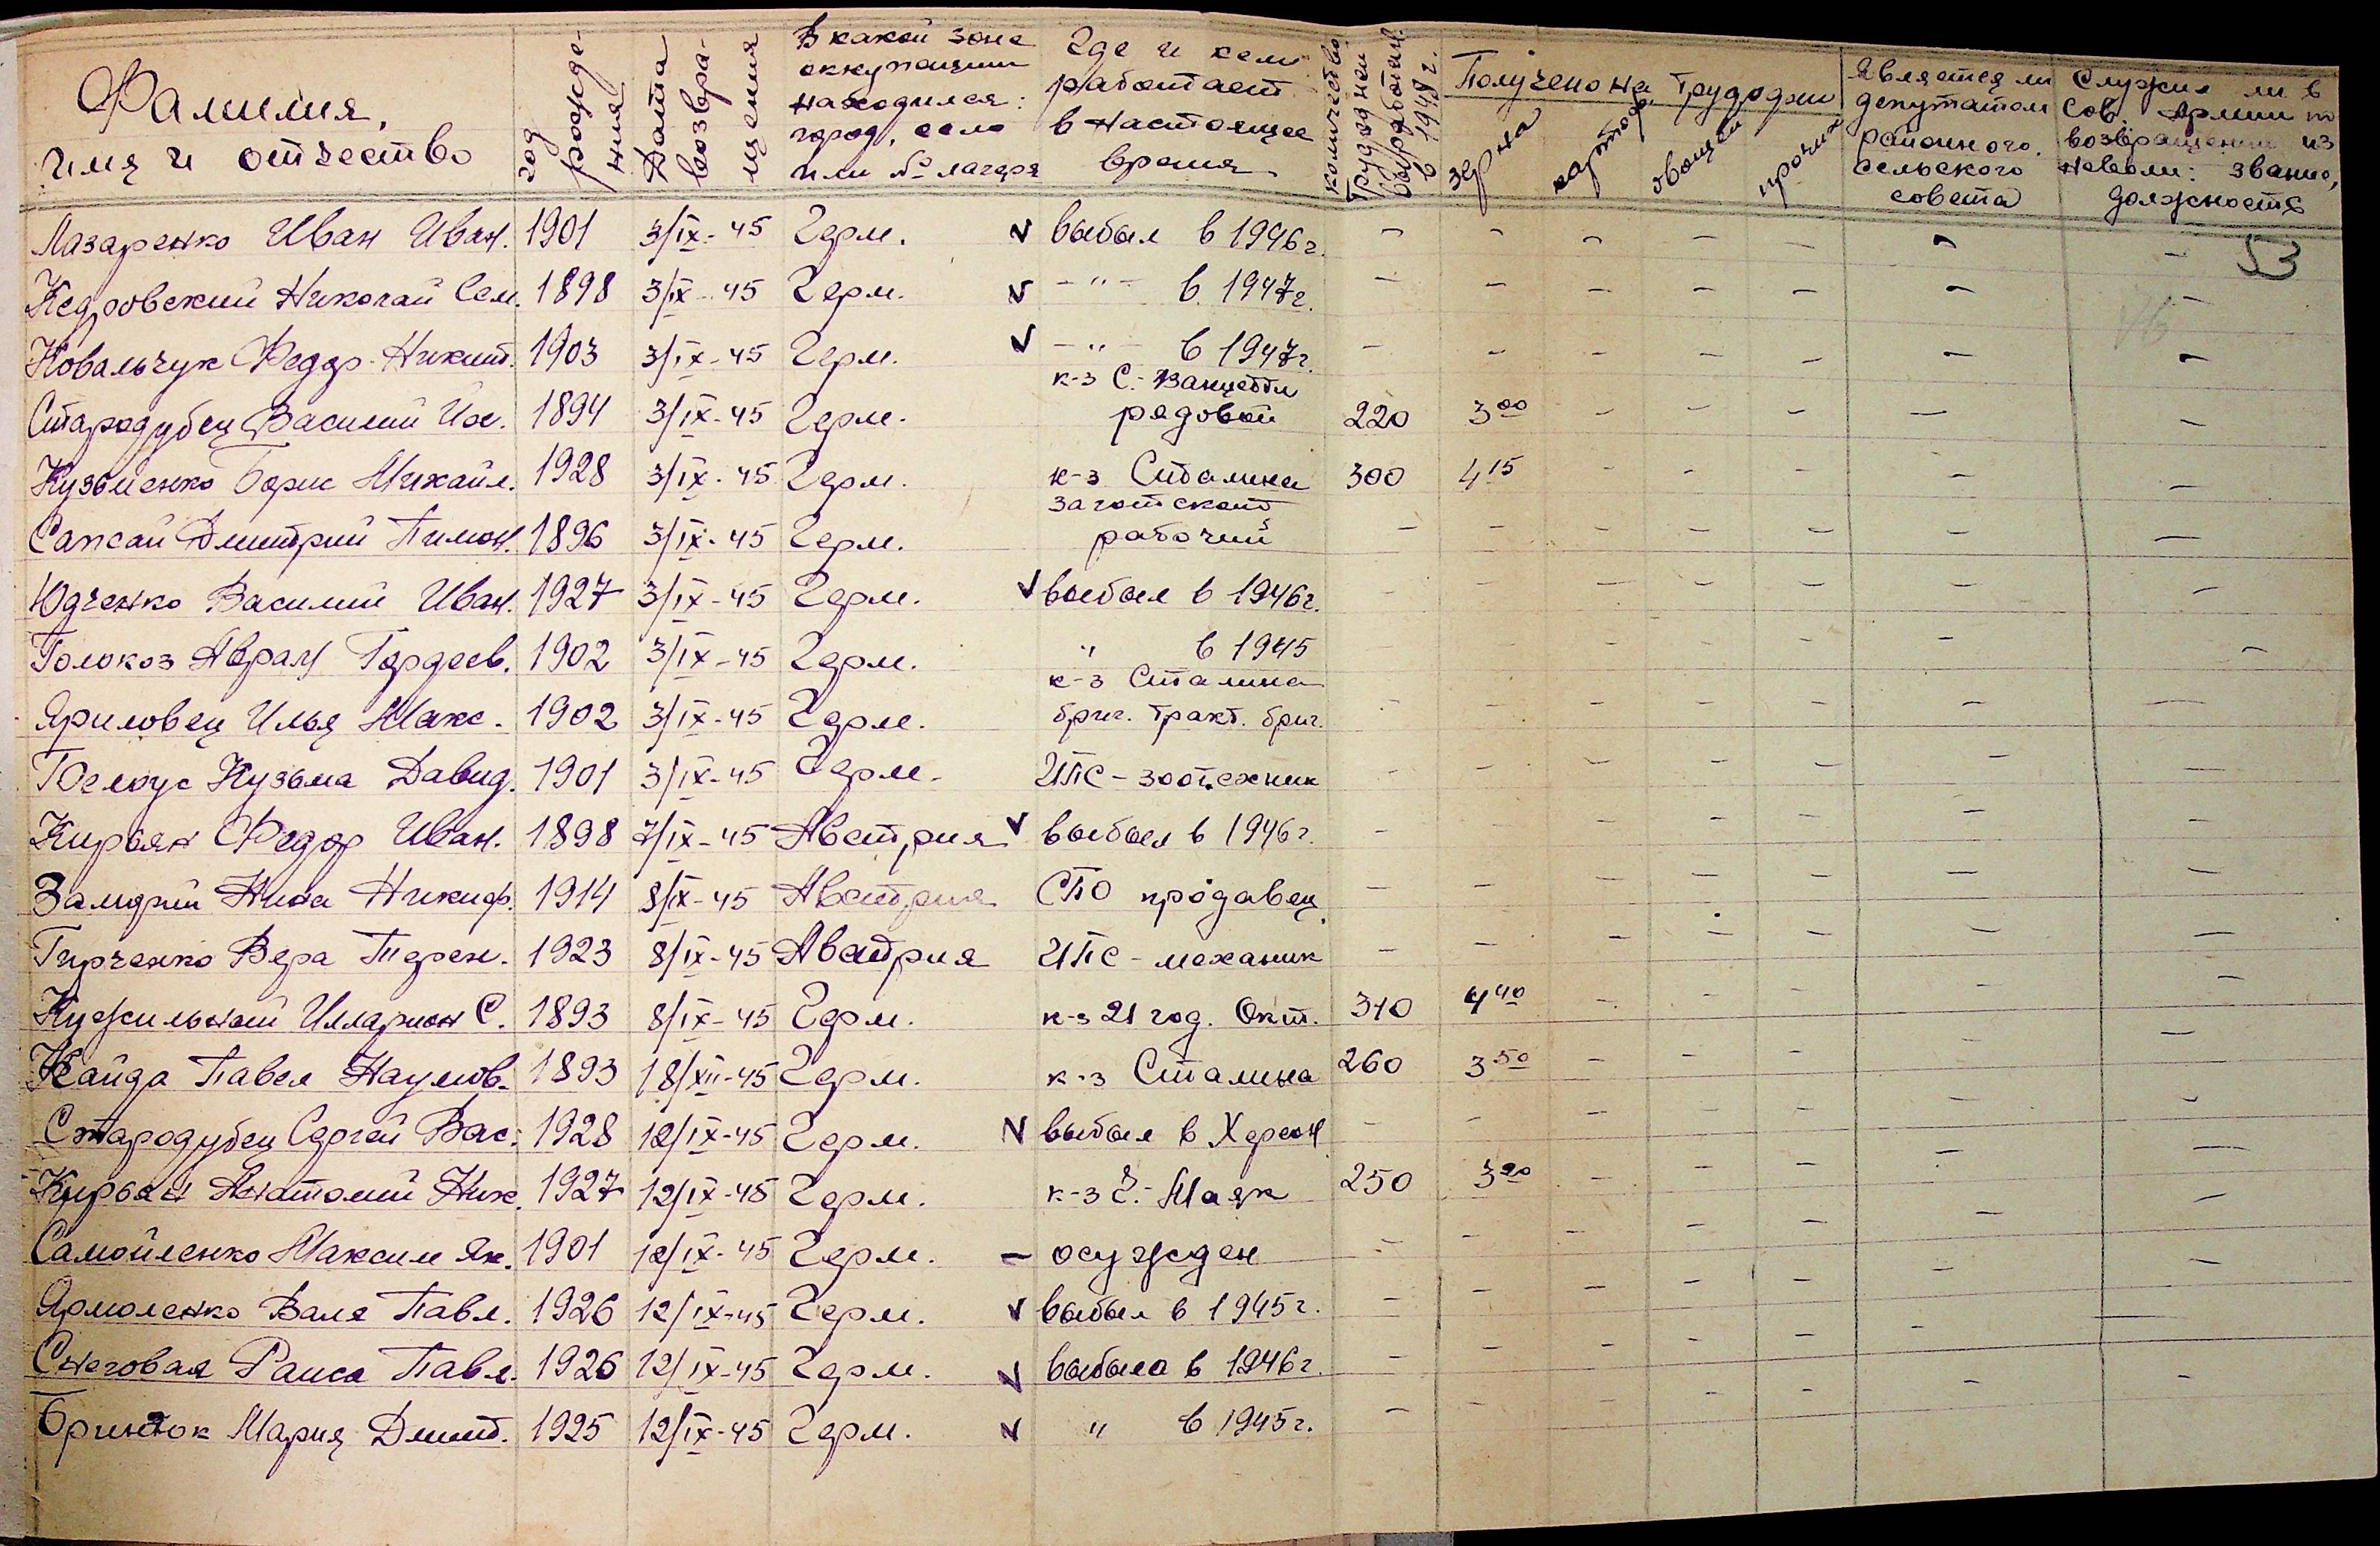 Фамилия, имя и отчество | год рождения | Дата возвращения | В какой зоне оккупации находился: город, село или № лагеря | Где и кем работает в настоящее время | количество трудодней выработан. в 1948 г. | Получено на трудодни: зерна, картоф., овощей, прочих | Является ли депутатом районного, сельского совета | Служил ли в Сов. Армии по возвращении из неволи: звание, должность
53
Лазаренко Иван Иван. 1901 3/IX-45 Герм. ✓ выбыл в 1946 г. - - - - - - -
Кедровский Николай Сем. 1898 3/IX-45 Герм. ✓ -"- в 1947 г. - - - - - - -
Ковальчук Федор Никит. 1903 3/IX-45 Герм. ✓ -"- в 1947 г. - - - - - - -
к-з С.-Ванцетти
Стародубец Василий 1894 3/IX-45 Герм. рядовой 220 3 00 - - - - -
Кузьменко Борис Михайл. 1928 3/IX-45 Герм. к-з Сталина 300 4 15 - - - - -
Заготскот
Сапсай Дмитрий Пимон. 1896 3/IX-45 Герм. рабочий - - - - - - -
Юдченко Василий Иван. 1927 3/IX-45 Герм. ✓ выбыл в 1946 г. - - - - - - -
Голокоз Аврам Гордеев. 1902 3/IX-45 Герм. " в 1945 - - - - - - -
к-з Сталина
Яриловец Илья Макс. 1902 3/IX-45 Герм. бриг. тракт. бриг. - - - - - - -
Кузьма Давид. 1901 3/IX-45 Герм. ИПС-зоотехник - - - - - - -
Кирьян Федор Иван. 1898 7/IX-45 Австрия ✓ выбыл в 1946 г. - - - - - - -
Нина Никиф. 1914 8/IX-45 Австрия СПО продавец - - - - - - -
Гирченко Вера Терен. 1923 8/IX-45 Австрия ИПС-механик - - - - - - -
Кужильный Илларион С. 1893 8/IX-45 Герм. к-з 21 год. Окт. 310 4 40 - - - - -
Кайда Павел Наумов. 1893 18/XII-45 Герм. к-з Сталина 260 3 50 - - - - -
Стародубец Сергей Вас. 1928 12/IX-45 Герм. ✓ выбыл в Херсон - - - - - - -
Кирьян Анатолий Ник. 1927 12/IX-45 Герм. к-з Ч.-Маяк 250 3 20 - - - - -
Самойленко Максим Як. 1901 12/IX-45 Герм. - осужден - - - - - - -
Ярмоленко Валя Павл. 1926 12/IX-45 Герм. ✓ выбыл в 1945 г. - - - - - - -
Снеговая Раиса Павл. 1926 12/IX-45 Герм. ✓ выбыла в 1946 г. - - - - - - -
Бринток Мария Дмит. 1925 12/IX-45 Герм. ✓ " в 1945 г. - - - - - - -